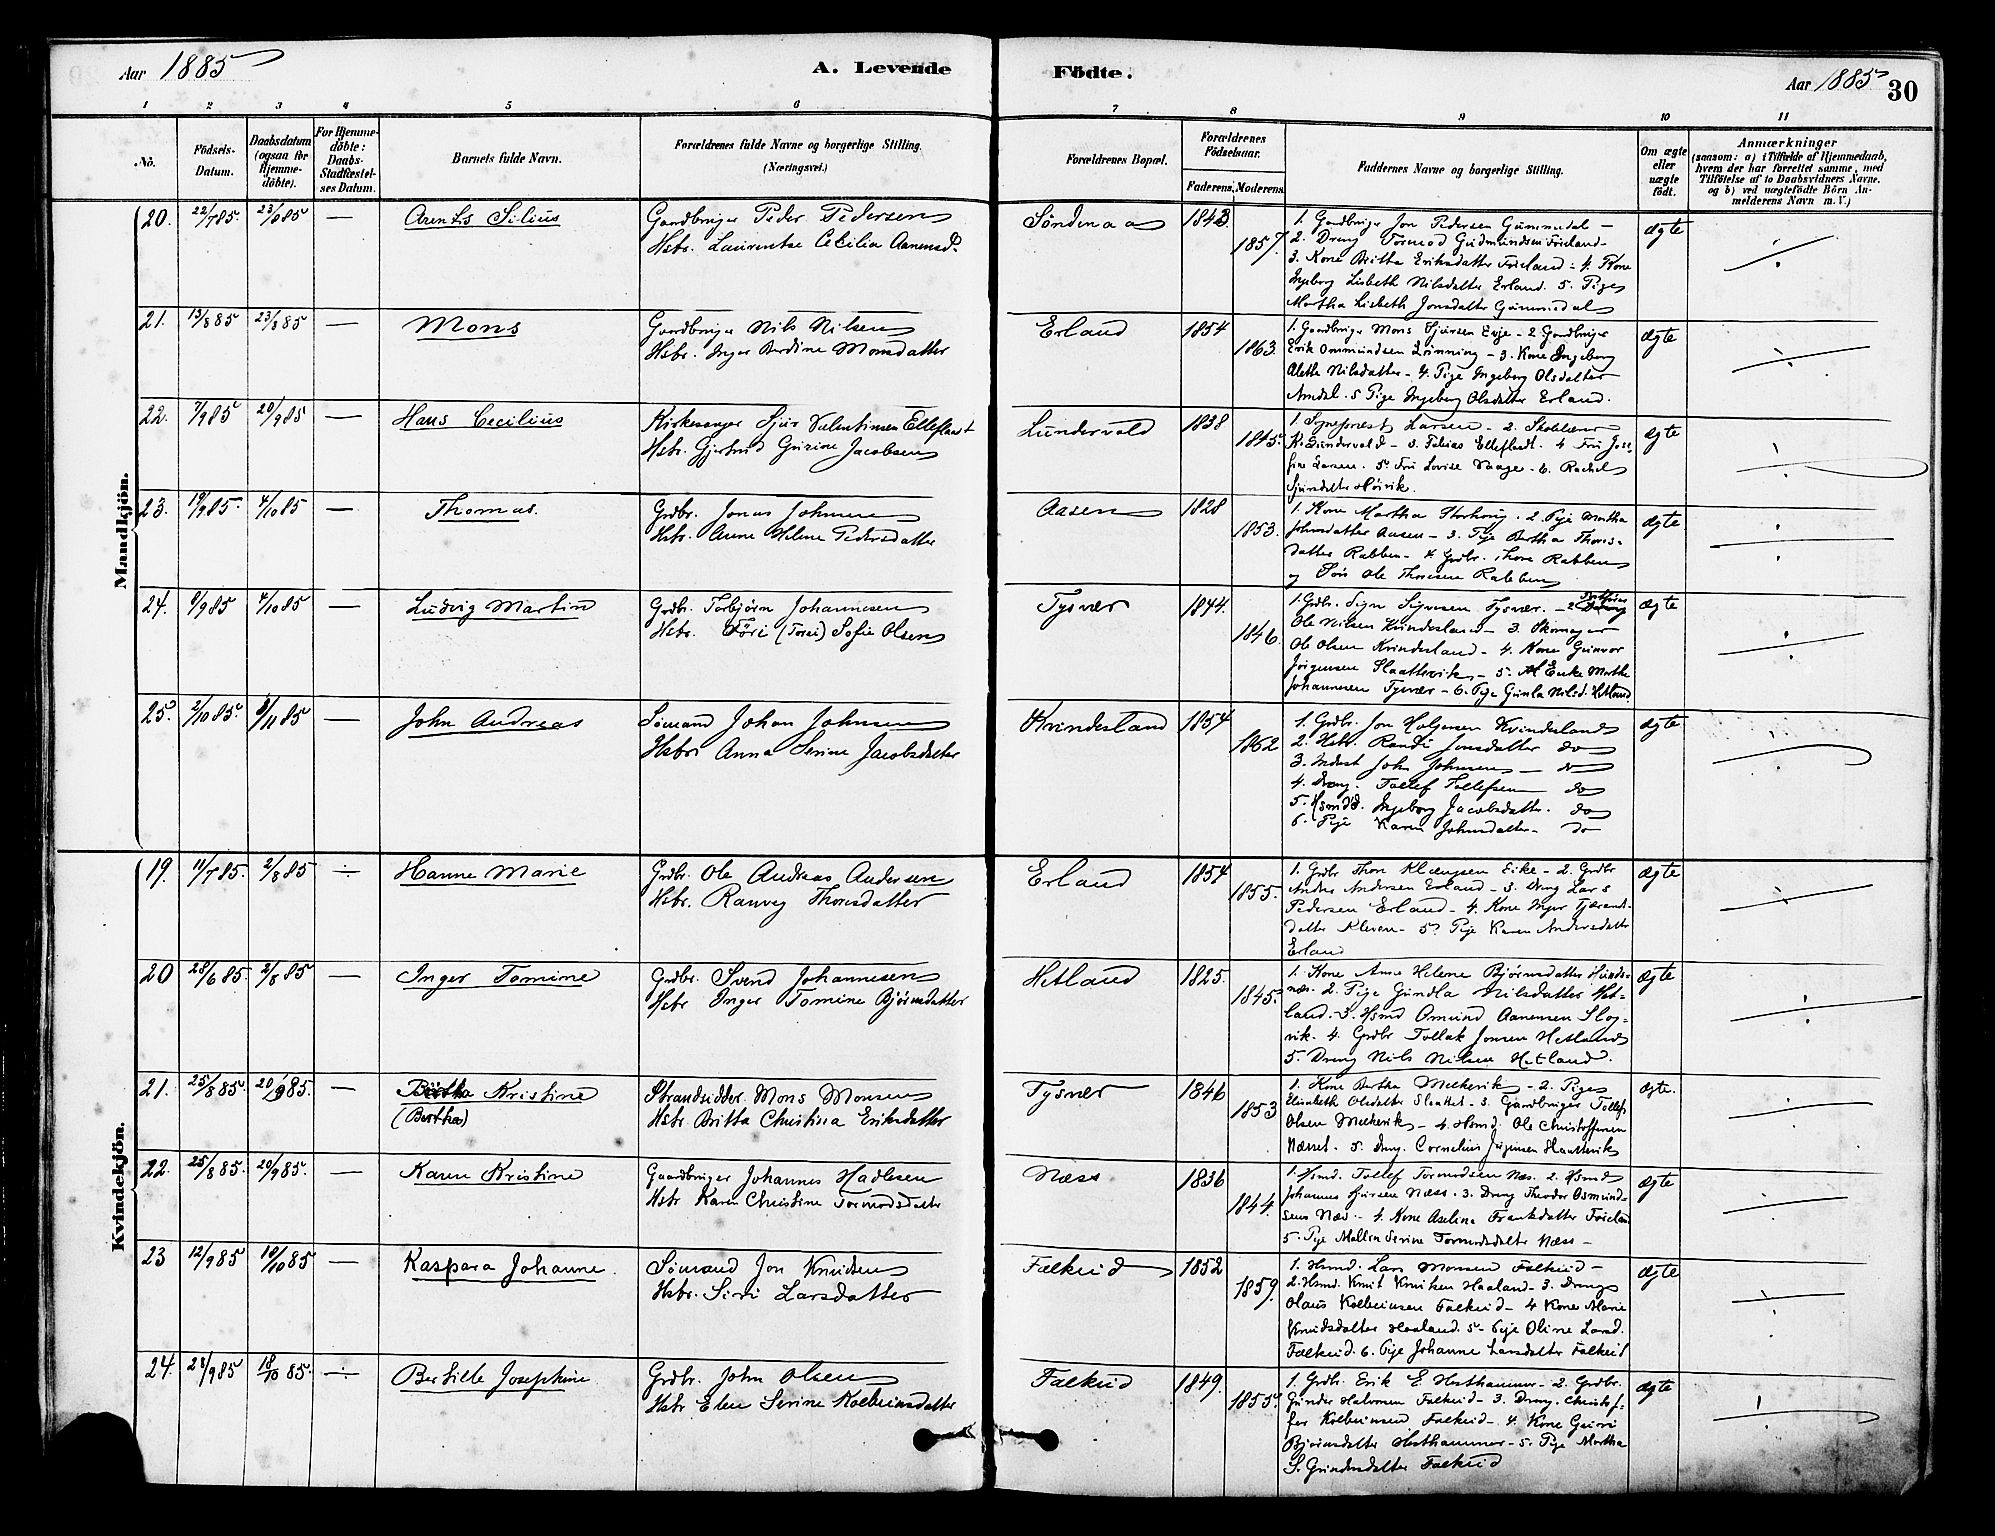 Aar 1885
A. Levende
Födte.
Aar 1885
30
1 2 3 4 5 6 7 8 9 10 11
No.
Födsels-
Datum.
Daabsdatum
(ogsaa for
Hjemme-
döbte).
For Hjemme-
döbte:
Daabs-
Stadfæstel-
ses Datum.
Barnets fulde Navn.
Forældrenes fulde Navne og borgerlige Stilling.
(Næringsvei.)
Forældrenes Bopæl.
Forældrenes
Födselsaar.
Faderens. Moderens.
Faddernes Navne og borgerlige Stilling.
Om ægte
eller
uægte
födt.
Anmærkninger
(saasom: a) i Tilfælde af Hjemmedaab,
hvem der har forrettet samme, med
Tilföielse af to Daabsvidners Navne.
og b) ved uægtefödte Börn An-
melderens Navn m. V.)
Mandkjön.
20. 22/7 85 23/8 85 — Arents Silius
Gaardbruger Peder Pedersen
Hstr. Laurentse Cecilia Aanensd.
Söndenaa 1843 1857.
1. Gaardbruger Jon Pedersen Gummedal —
2. Dreng Tormod Gudmundsen Föreland —
3. Kone Britta Eriksdatter Föreland — 4. Kone
Ingeborg Lisbeth Nilsdatter Erland. 5. Pige
Martha Lisbeth Jonsdatter Gummedal
Ægte
21. 13/8 85 23/8 85 — Mons
Gaardbruger Nils Nilsen
Hstr. Inger Berdine Monsdatter
Erland 1854 1863.
1. Gaardbruger Mons Sjursen Evje — 2 Gaardbruger
Erik Ommundsen Lönning — 3. Kone Ingeborg
Alethe Nilsdatter — 4. Pige Ingeborg Olsdatter
Arndal. 5 Pige Ingeborg Olsdatter Erland.
Ægte
22. 7/9 85 20/9 85 — Hans Cecilius
Kirkesanger Sjur Valentinsen Elleflaat
Hstr. Gjertrud Gurine Jacobsen
Lundervold 1838 1845.
1. Sogneprest Larsen — 2. Skolelærer
K. Lundervold — 3. Tobias Ellefladt. 4 Fru Jose-
fine Larsen. 5. Fru Lovise Vaage — 6. Rachel
Sjursdatter Höivik.
Ægte
23. 19/9 85. 4/10 85 — Thomas.
Grdbr. Jonas Johnsen
Hstr. Anne Helene Pedersdatter
Aasen 1828 1853.
1. Kone Martha Storhoug. 2. Pige Martha
Johnsdatter Aasen — 3. Pige Bertha Thores-
datter Rabben — 4. Grdbr. Thore Rabben
og Sön Ole Thoresen Rabben
Ægte
24. 8/9 85 4/10 85 — Ludvig Martin
Grdbr. Torbjörn Johannesen
Hstr. Töri (Torri) Sofie Olsen
Tysvær 1844. 1846.
Ole Nilsen Kvindesland — 3. Skomager
Ole Olsen Kvindesland — 4. Kone Gunvor
Jörgensen Slaattevik — 5. Enke Marthe
Johannesen Tysvær — 6. Pige Gunla Nilsd. Hetland
Ægte
25. 2/10 85. 8/11 85 — John Andreas
Sömand Johan Johnsen
Hstr. Anna Serine Jacobsdatter
Kvindesland 1857 1862
1. Grdbr. Jon Holgersen Kvindesland
2. Hstr. Randi Jonsdatter do
3. Inderst John Johnsen — do
4. Dreng. Tollef Tollefsen do
5. Ingeborg Jacobsdatter. do
6. Pige Karen Johnsdatter — do
Ægte
Kvindekjön.
19. 11/7 85. 2/8 85 ÷ Hanne Marie
Grdbr. Ole Andreas Andersen
Hstr. Ranveg Thoresdatter
Erland 1854 1855.
1. Grdbr Thor Eike — 2. Grdbr
Anders Andersen Erland — 3. Dreng Lars
Pedersen Erland — 4. Kone Inger Tjærand-
datter Kleven — 5. Pige Karen Andersdatter
Erland
Ægte
20 28/6 85. 2/8 85 — Inger Tomine
Grdbr. Svend Johannesen
Hstr Inger Tomine Bjørnsdatter
Hetland 1825. 1845.
1. Kone Anne Helene Bjørnsdatter Hunds-
næs. 2. Pige Gundla Nilsdatter Het-
land. 3. Hsmd Omund Aanensen Slog-
vik. 4. Grdbr Tollak Jonsen Hetland
5. Dreng Nils Nilsen Hetland.
Ægte
21. 25/8 85. 20/9 85. — Kristine
(Bertha)
Strandsidder. Mons Monsen
Hstr. Britta Christina Eriksdatter
Tysvær 1846 1853
1. Kone Bertha Melkevik — 2. Pige
Elisabeth Olsdatter Slaattet — 3. Gaardbruger Tollef
Olsen Melkevik — 4. Hsmd. Ole Christoffersen
Næset. 5. Dreng. Cornelius Jørgensen Slaattevik
Ægte.
22. 25/8 85. 20/9 85. — Karen Kristine
Gaardbruger Johannes Hadlesen
Hstr Karen Christine Tormodsdatter
Næss 1836 1844.
1. Hsmd. Tollef Tormodsen Næs. 2. Hsmd
Johannes Sjursen Næss. 3. Dreng Theodor Osmund-
sen Næs — 4. Kone Aselina Franksdatter Föreland
5. Pige Mallin Serine Tormodsdatter Næss —
Ægte
23 12/9 85 10/10 85 — Kaspara Johanne.
Sömand Jon Knudsen
Hstr. Siri Larsdatter
Falkeid 1852 1859.
1. Hsmd. Lars Monsen Falkeid —
2. Hsmd. Knut Knutsen Haaland — 3. Dreng
Olaus Kolbeinsen Falkeid — 4 Kone Marie
Knudsdatter Haaland. 5 — Pige Oline Larsd.
Falkeid. 6. Pige Johanne Larsdatter Falkeid
Ægte
24. 28/9 85 18/10 85. ÷ Bertille Josephine
Grdbr. John Olsen
Hstr Elen Serine Kolbeinsdatter
Falkeid 1849. 1855.
1. Grdbr. Erik E. Hesthammer — 2. Grdbr.
Gunder Halvorsen Falkeid — 3. Dreng. Christof-
fer Kolbeinsen Falkeid — 4. Kone Guro
Bjørnsdatter Hesthammer — 5. Pige Martha
S. Gundersdatter Falkeid
Ægte